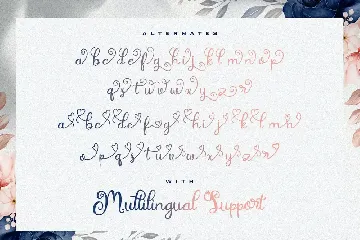 ALTERNATES
a b c d e f g h i j k l m n o p
q r s t u v w x y z
a b c d e f g h i j k l m n
o p q r s t u v w x y z
WITH
Multilingual Support